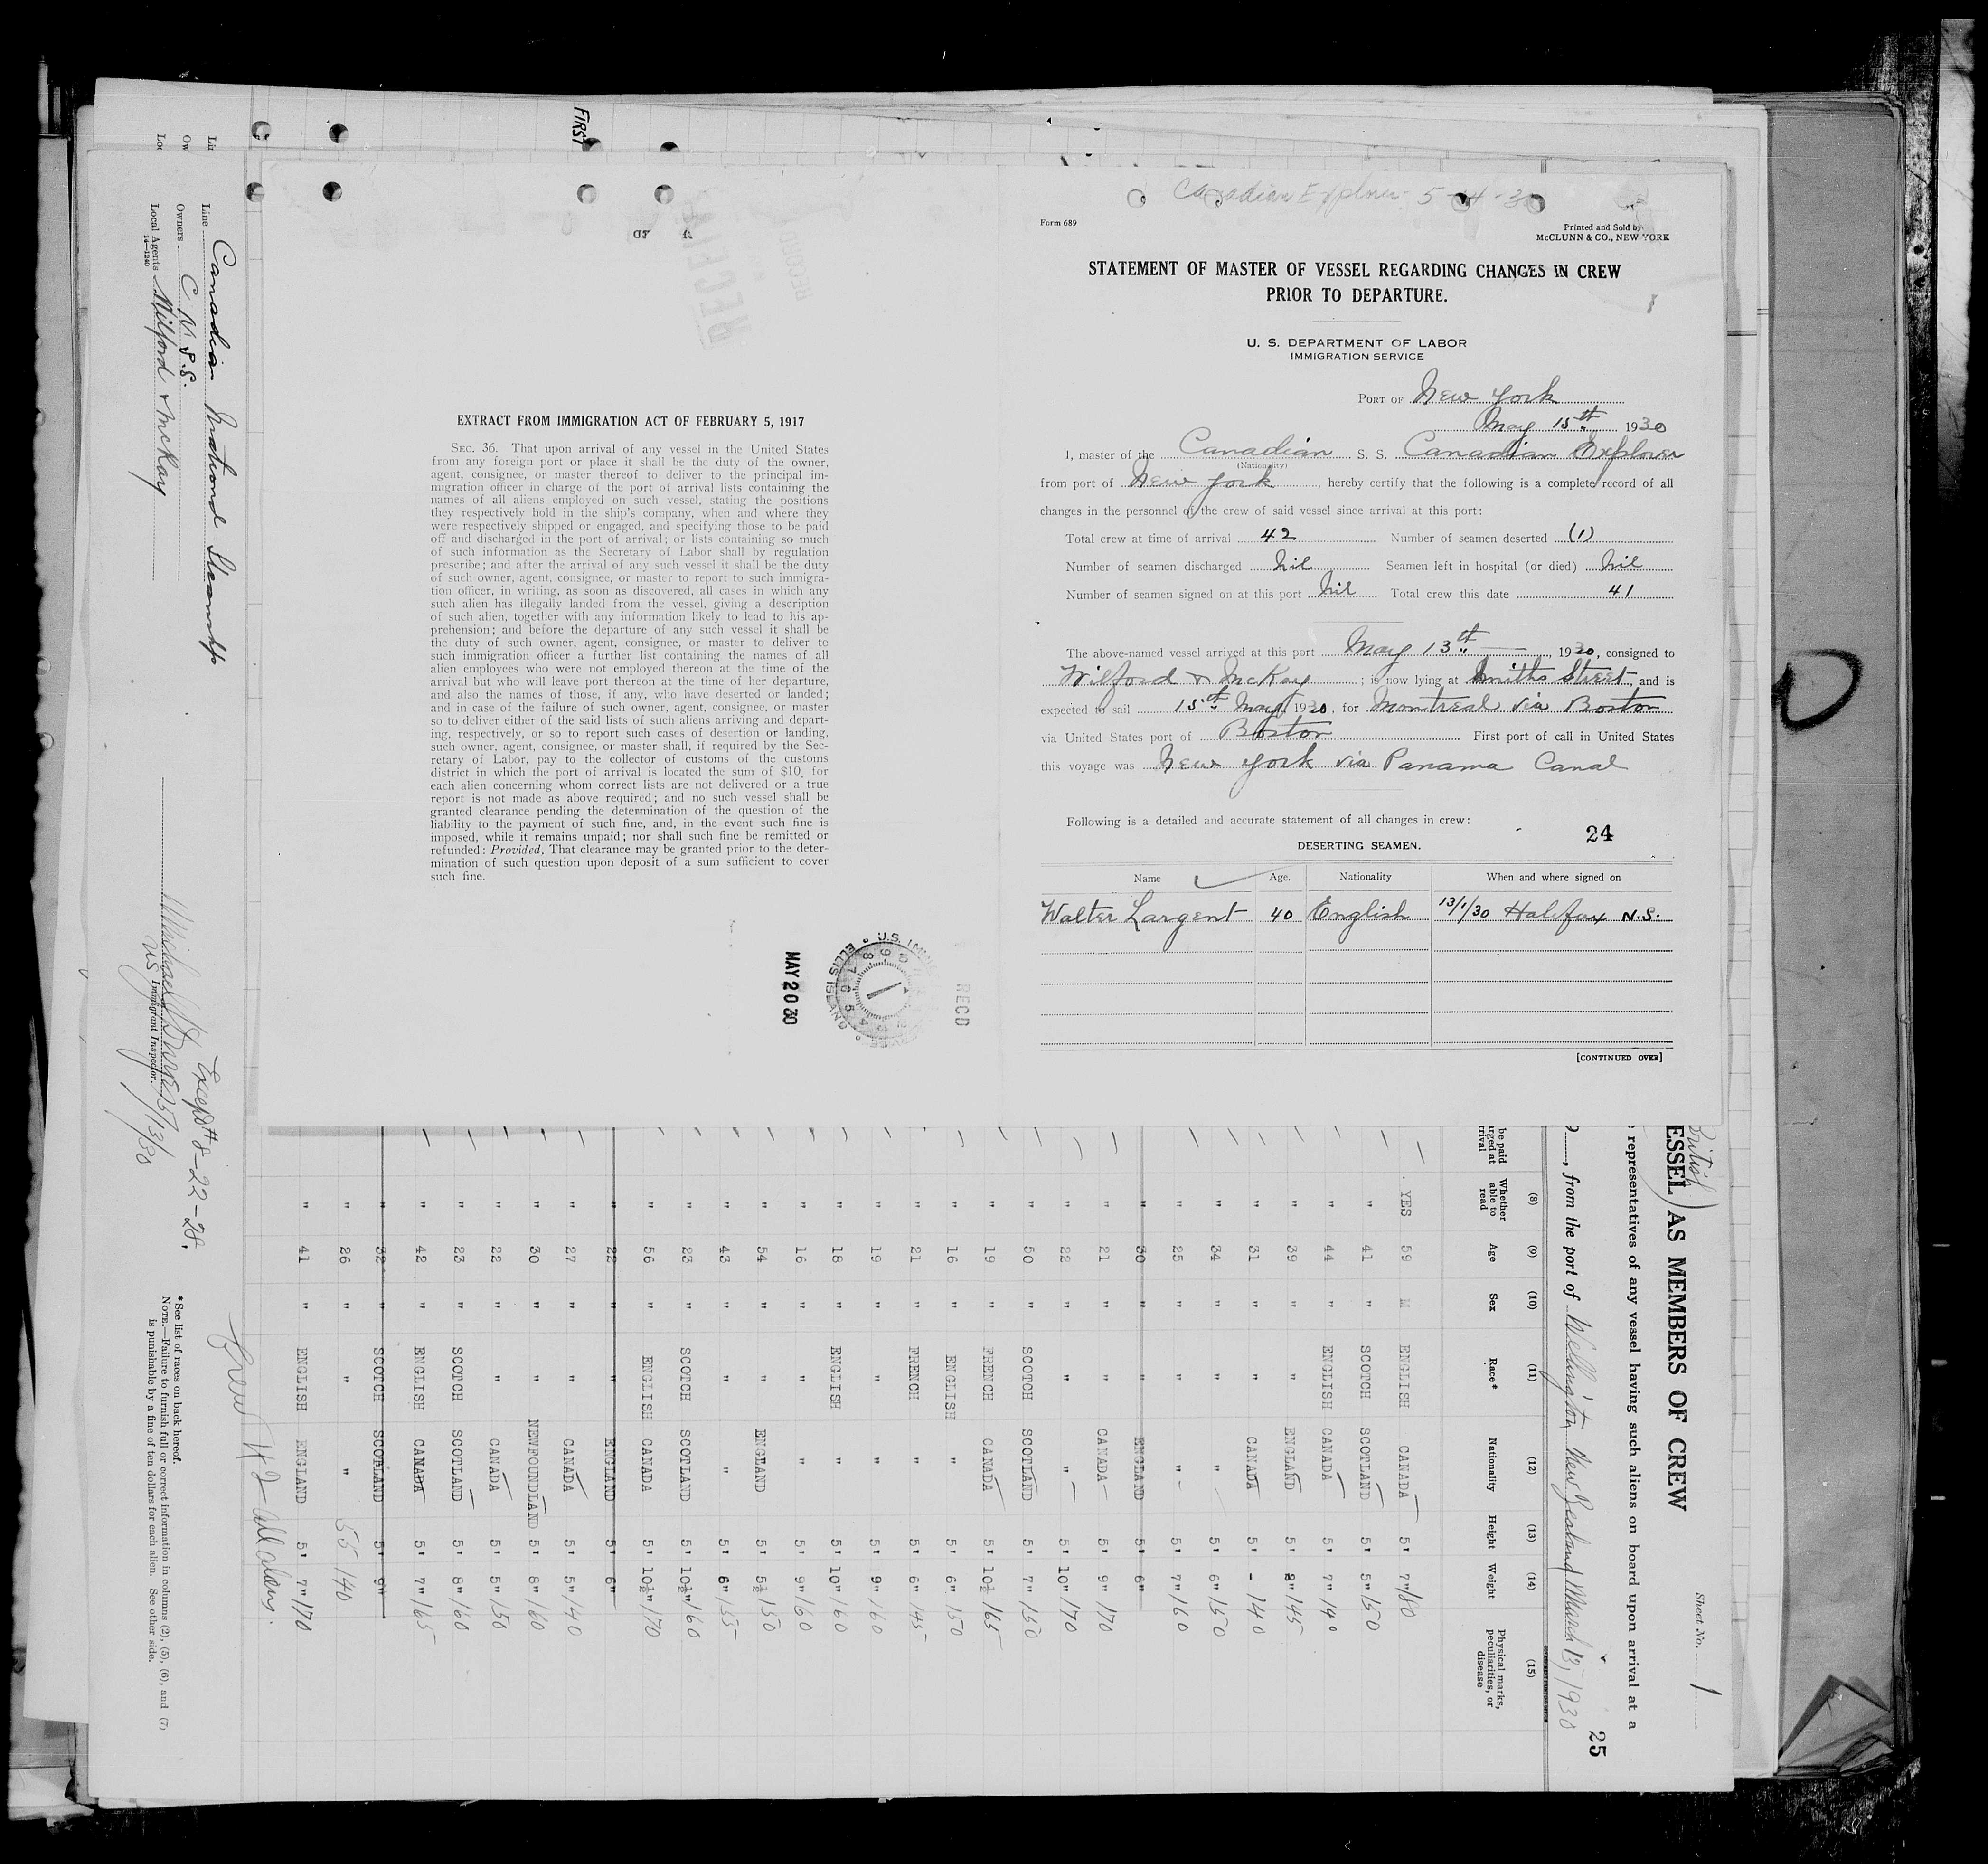 FIRST
Canadian Explorer 5-14-30
Form 689
Printed and Sold by
McCLUNN & CO., NEW YORK
STATEMENT OF MASTER OF VESSEL REGARDING CHANGES IN CREW
PRIOR TO DEPARTURE.
U. S. DEPARTMENT OF LABOR
IMMIGRATION SERVICE
PORT OF New York
May 15th 1930
I, master of the Canadian S. S. Canadian Explorer
(Nationality)
from port of New York, hereby certify that the following is a complete record of all
changes in the personnel of the crew of said vessel since arrival at this port:
Total crew at time of arrival 42 Number of seamen deserted (1)
Number of seamen discharged Nil Seamen left in hospital (or died) Nil
Number of seamen signed on at this port Nil Total crew this date 41
The above-named vessel arrived at this port May 13th 1930, consigned to
Wilford & McKay; is now lying at Smiths Street, and is
expected to sail 15th May, 1930, for Montreal via Boston
via United States port of Boston First port of call in United States
this voyage was New York via Panama Canal
Following is a detailed and accurate statement of all changes in crew:
24
DESERTING SEAMEN.
Name Age. Nationality When and where signed on
Walter Largent 40 English 13/1/30 Halifax N.S.
[CONTINUED OVER]
EXTRACT FROM IMMIGRATION ACT OF FEBRUARY 5, 1917
SEC. 36. That upon arrival of any vessel in the United States
from any foreign port or place it shall be the duty of the owner,
agent, consignee, or master thereof to deliver to the principal im-
migration officer in charge of the port of arrival lists containing the
names of all aliens employed on such vessel, stating the positions
they respectively hold in the ship's company, when and where they
were respectively shipped or engaged, and specifying those to be paid
off and discharged in the port of arrival; or lists containing so much
of such information as the Secretary of Labor shall by regulation
prescribe; and after the arrival of any such vessel it shall be the duty
of such owner, agent, consignee, or master to report to such immigra-
tion officer, in writing, as soon as discovered, all cases in which any
such alien has illegally landed from the vessel, giving a description
of such alien, together with any information likely to lead to his ap-
prehension; and before the departure of any such vessel it shall be
the duty of such owner, agent, consignee, or master to deliver to
such immigration officer a further list containing the names of all
alien employees who were not employed thereon at the time of the
arrival but who will leave port thereon at the time of her departure,
and also the names of those, if any, who have deserted or landed;
and in case of the failure of such owner, agent, consignee, or master
so to deliver either of the said lists of such aliens arriving and depart-
ing, respectively, or so to report such cases of desertion or landing,
such owner, agent, consignee, or master shall, if required by the Sec-
retary of Labor, pay to the collector of customs of the customs
district in which the port of arrival is located the sum of $10, for
each alien concerning whom correct lists are not delivered or a true
report is not made as above required; and no such vessel shall be
granted clearance pending the determination of the question of the
liability to the payment of such fine, and, in the event such fine is
imposed, while it remains unpaid; nor shall such fine be remitted or
refunded: Provided, That clearance may be granted prior to the deter-
mination of such question upon deposit of a sum sufficient to cover
such fine.
MAY 20 30
RECD
Sheet No. 1
British
ESSEL) AS MEMBERS OF CREW
representatives of any vessel having such aliens on board upon arrival at a
25
, from the port of Wellington, New Zealand March 13, 1930
(8) (9) (10) (11) (12) (13) (14) (15)
be paid Whether able to read Age Sex Race* Nationality Height Weight Physical marks, peculiarities, or disease
YES 59 M ENGLISH CANADA 5' 7" 180
" 41 " SCOTCH SCOTLAND 5' 5" 150
" 44 " ENGLISH CANADA 5' 7" 190
" 39 " " ENGLAND 5' 8" 145
" 31 " " CANADA 5' - 140
" 34 " " " 5' 6" 150
" 25 " " " 5' 7" 160
" 30 " " ENGLAND 5' 6"
" 21 " " CANADA 5' 9" 170
" 22 " " " 5' 10" 170
" 50 " SCOTCH SCOTLAND 5' 7" 150
" 19 " FRENCH CANADA 5' 10½ 165
" 16 " ENGLISH " 5' 6" 150
" 21 " FRENCH " 5' 6" 145
" 19 " " " 5' 9" 160
" 18 " ENGLISH " 5' 10" 160
" 16 " " " 5' 9" 160
" 54 " " ENGLAND 5' 5½ 150
" 43 " " " 5' 6" 155
" 23 " SCOTCH SCOTLAND 5' 10½" 160
" 56 " ENGLISH CANADA 5' 10½" 170
" 22 " " ENGLAND 5' 6"
" 27 " " CANADA 5' 5" 140
" 30 " " NEWFOUNDLAND 5' 8" 160
" 22 " " CANADA 5' 5" 150
" 23 " SCOTCH SCOTLAND 5' 8" 160
" 42 " ENGLISH CANADA 5' 7" 165
" 32 " SCOTCH SCOTLAND 5' 9"
" 26 " " " 55 140
" 41 " ENGLISH ENGLAND 5' 7" 170
Crew 42 All aliens.
Line Canadian National Steamship
Owners C. N. S.S.
Local Agents Wilford & McKay
14-1240
Except # 8-22-28.
US Immigrant Inspector. 5/13/30
*See list of races on back hereof.
NOTE.—Failure to furnish full or correct information in columns (2), (5), (6), and (7)
is punishable by a fine of ten dollars for each alien. See other side.